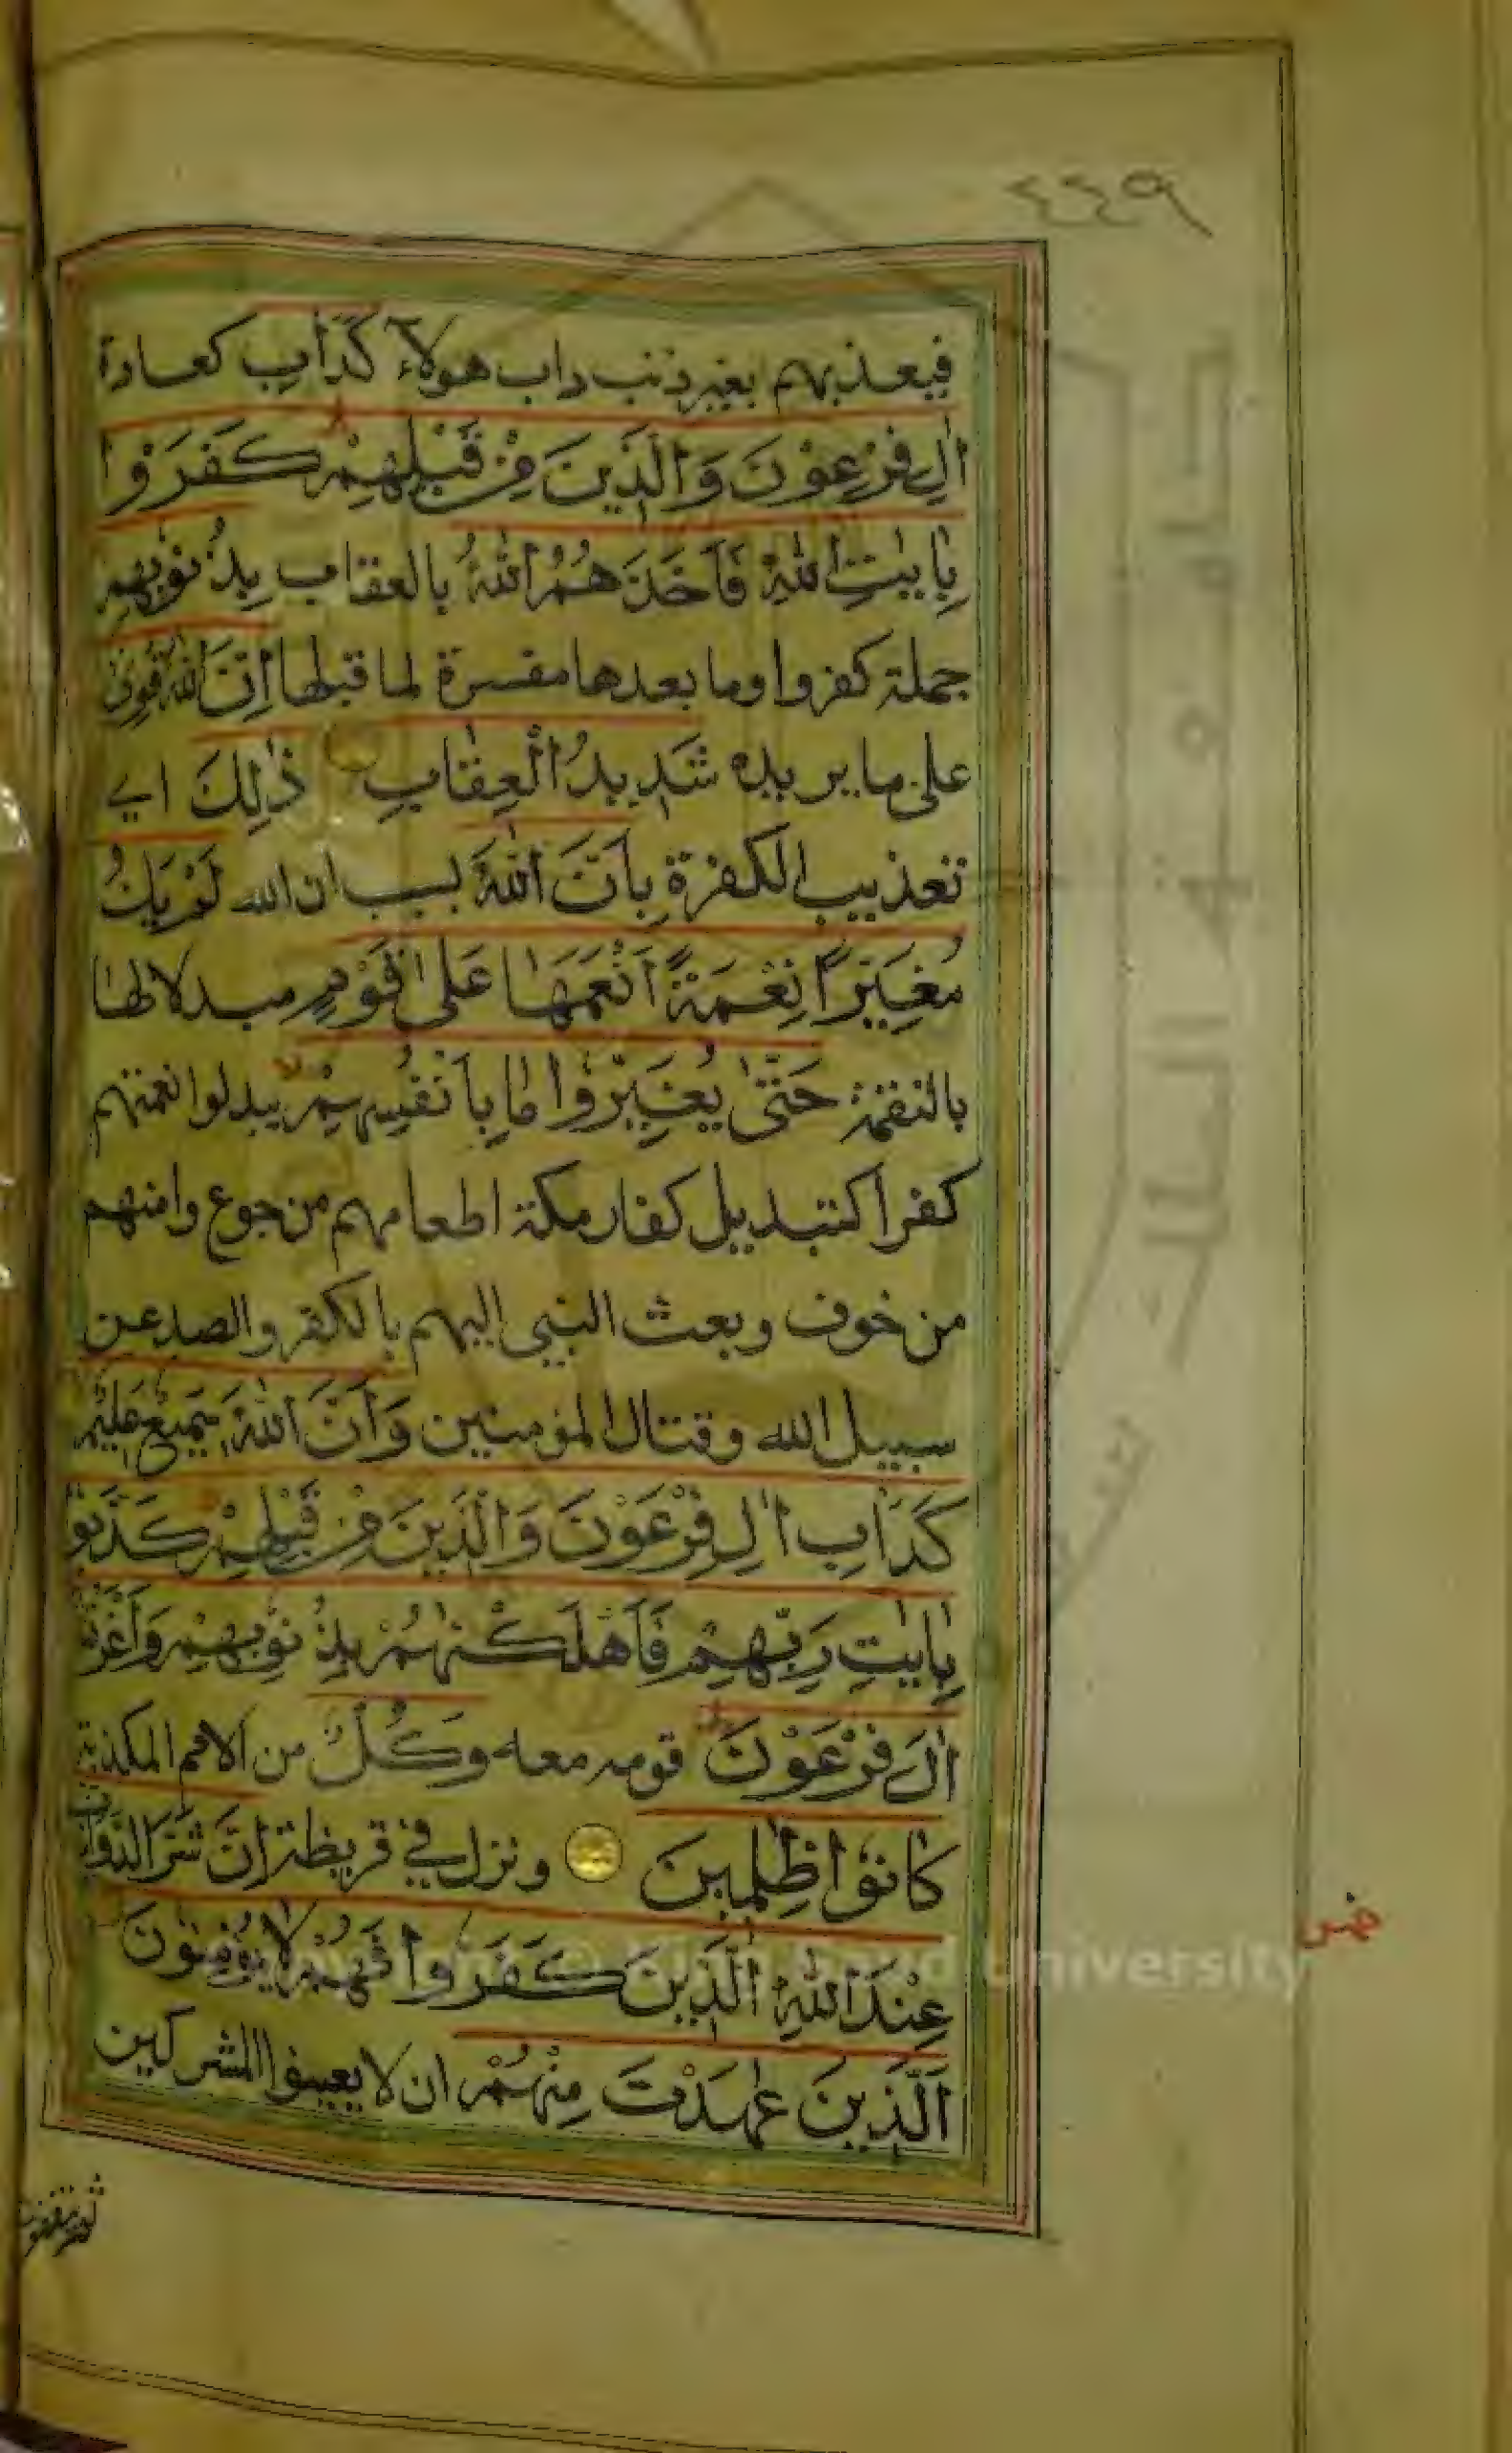 ٤٤٩
فيعذبهم بغير ذنب داب هولآء كَدَأْبِ كعادة
اٰلِ فِرْعَوْنَ وَالَّذِينَ مِنْ قَبْلِهِمْ كَفَرُوْا
بِاٰيٰتِ اللّٰهِ فَاَخَذَهُمُ اللّٰهُ بالعقاب بِذُنُوْبِهِمْ
جملة كفروا وما بعدها مفسرة لما قبلها اِنَّ اللّٰهَ قَوِىٌّ
على ما يريده شَدِيدُ الْعِقٰابِ ذٰلِكَ اى
تعذيب الكفرة بِاَنَّ اللّٰهَ بسبب ان الله لَمْ يَكُ
مُغَيِّرًا نِعْمَةً اَنْعَمَهٰا عَلىٰ قَوْمٍ مبدلا لها
بالنقمة حَتّٰى يُغَيِّرُوْا مٰا بِاَنْفُسِهِمْ يبدلوا نعمتهم
كفرا كتبديل كفار مكة اطعامهم من جوع وامنهم
من خوف وبعث النبي اليهم بالكفر والصد عن
سبيل الله وقتال المؤمنين وَاَنَّ اللّٰهَ سَمِيعٌ عَلِيمٌ
كَدَأْبِ اٰلِ فِرْعَوْنَ وَالَّذِينَ مِنْ قَبْلِهِمْ كَذَّبُوْا
بِاٰيٰتِ رَبِّهِمْ فَاَهْلَكْنٰهُمْ بِذُنُوْبِهِمْ وَاَغْرَقْنٰا
اٰلَ فِرْعَوْنَ قومه معه وَكُلٌّ من الامم المكذبة
كٰانُوْا ظٰلِمِينَ ونزل في قريظة اِنَّ شَرَّ الدَّوَآبِّ
عِنْدَ اللّٰهِ الَّذِينَ كَفَرُوْا فَهُمْ لٰا يُؤْمِنُوْنَ
اَلَّذِينَ عٰهَدْتَ مِنْهُمْ ان لا يعينوا المشركين